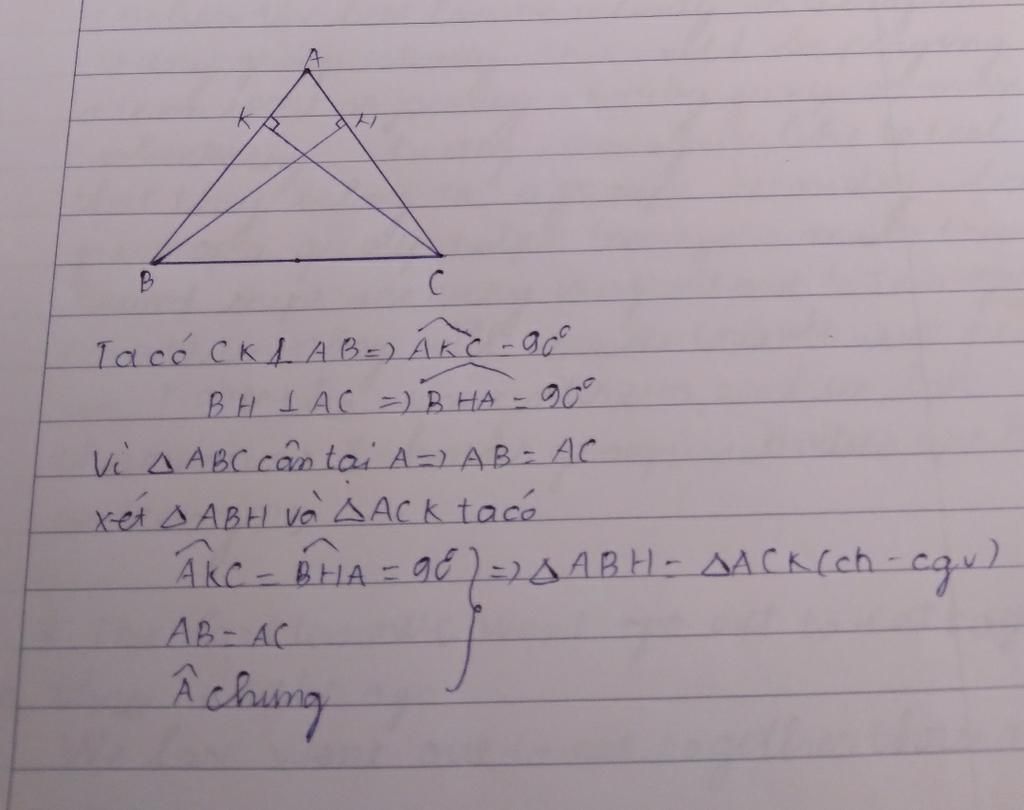 A
K H
B C
Ta có CK ⊥ AB => \widehat{AKC} = 90°
BH ⊥ AC => \widehat{BHA} = 90°
Vì △ ABC cân tại A => AB = AC
xét △ ABH và △ ACK ta có
\widehat{AKC} = \widehat{BHA} = 90° } => △ ABH = △ ACK (ch - cgv)
AB = AC
\widehat{A} chung